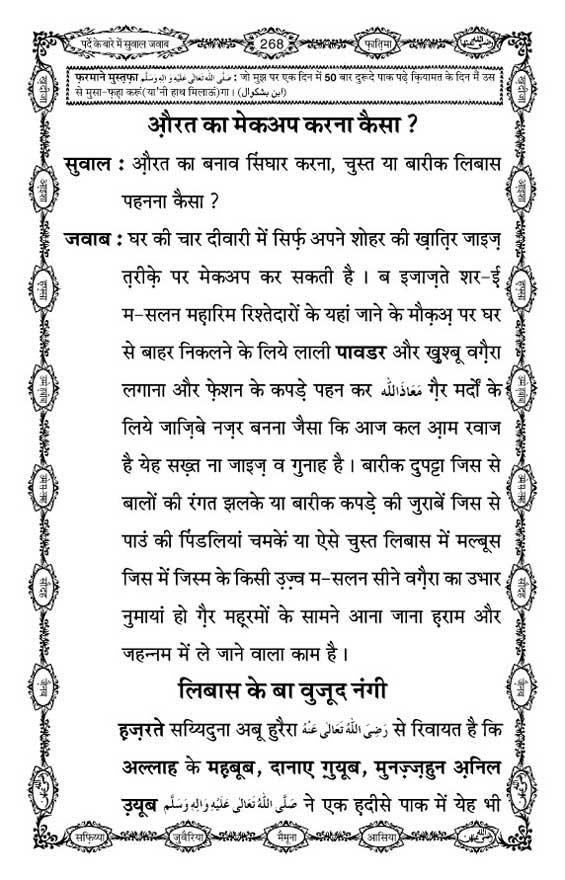 पर्दे के बारे में सुवाल जवाब
268
फ़ातिमा
फ़रमाने मुस्तफ़ा صَلَّى اللّٰهُ تَعَالٰى عَلَيْهِ وَاٰلِهٖ وَسَلَّم : जो मुझ पर एक दिन में 50 बार दुरूदे पाक पढ़े क़ियामत के दिन मैं उस
से मुसा-फ़हा करूं(या'नी हाथ मिलाऊं)गा। (ابن بشكوال)
औ़रत का मेकअप करना कैसा ?
सुवाल : औ़रत का बनाव सिंघार करना, चुस्त या बारीक लिबास
पहनना कैसा ?
जवाब : घर की चार दीवारी में सिर्फ़ अपने शोहर की ख़ात़िर जाइज़
त़रीके़ पर मेकअप कर सकती है । ब इजाज़ते शर-ई
म-सलन मह़ारिम रिश्तेदारों के यहां जाने के मौक़अ़ पर घर
से बाहर निकलने के लिये लाली पावडर और खुश्बू वगै़रा
लगाना और फे़शन के कपड़े पहन कर مَعَاذَاللّٰه गै़र मर्दों के
लिये जाज़िबे नज़र बनना जैसा कि आज कल आ़म रवाज
है येह सख़्त ना जाइज़ व गुनाह है । बारीक दुपट्टा जिस से
बालों की रंगत झलके या बारीक कपड़े की जुराबें जिस से
पाउं की पिंडलियां चमकें या ऐसे चुस्त लिबास में मल्बूस
जिस में जिस्म के किसी उ़ज़्व म-सलन सीने वगै़रा का उभार
नुमायां हो गै़र मह़रमों के सामने आना जाना ह़राम और
जहन्नम में ले जाने वाला काम है ।
लिबास के बा वुजूद नंगी
ह़ज़रते सय्यिदुना अबू हुरैरा رَضِىَ اللّٰهُ تَعَالٰى عَنْهُ से रिवायत है कि
अल्लाह के मह़बूब, दानाए गु़यूब, मुनज़्ज़हुन अ़निल
उ़यूब صَلَّى اللّٰهُ تَعَالٰى عَلَيْهِ وَاٰلِهٖ وَسَلَّم ने एक ह़दीसे पाक में येह भी
सफ़िय्या
जुवैरिया
मैमूना
आसिया